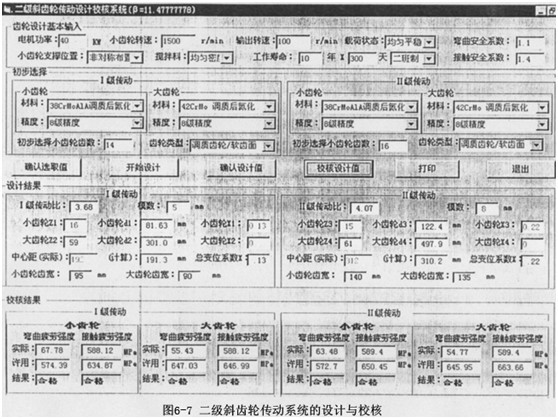 二级斜齿轮传动设计校核系统(β=11.47777778)
齿轮设计基本输入
电机功率: 40 KW 小齿轮转速: 1500 r/min 输出转速: 100 r/min 载荷状态: 均匀平稳 弯曲安全系数: 1.1
小齿轮支撑位置: 非对称布置 搅拌料: 均匀密度 工作寿命: 10 年 X 300 天 二班制 接触安全系数: 1.4
初步选择
I级传动 II级传动
小齿轮 大齿轮 小齿轮 大齿轮
材料: 38CrMoAlA调质后氮化 材料: 42CrMo 调质后氮化 材料: 38CrMoAlA调质后氮化 材料: 42CrMo 调质后氮化
精度: 8级精度 精度: 8级精度 精度: 8级精度 精度: 8级精度
初步选择小齿轮齿数: 14 齿轮类型: 调质齿轮/软齿面 初步选择小齿轮齿数: 16 齿轮类型: 调质齿轮/软齿面
确认选取值 开始设计 确认设计值 校核设计值 打印 退出
设计结果
I级传动 II级传动
I级传动比: 3.68 模数: 5 mm II级传动比: 4.07 模数: 8 mm
小齿轮Z1: 16 小齿轮d1: 81.63 mm 小齿轮X1: 0.13 小齿轮Z3: 15 小齿轮d3: 122.4 mm 小齿轮X3: 0.22
大齿轮Z2: 59 大齿轮d2: 301.0 mm 大齿轮X2: 0 大齿轮Z4: 61 大齿轮d4: 497.9 mm 大齿轮X4: 0
中心距(实际): (计算): 191.3 mm 总变位系数X: 13 中心距(实际): (计算): 310.2 mm 总变位系数X: 22
小齿轮齿宽: 95 mm 大齿轮齿宽: 90 mm 小齿轮齿宽: 140 mm 大齿轮齿宽: 135 mm
校核结果
I级传动 II级传动
小齿轮 大齿轮 小齿轮 大齿轮
弯曲疲劳强度 接触疲劳强度 弯曲疲劳强度 接触疲劳强度 弯曲疲劳强度 接触疲劳强度 弯曲疲劳强度 接触疲劳强度
实际: 67.78 588.12 MPa 实际: 55.43 588.12 MPa 实际: 63.48 589.4 MPa 实际: 54.77 589.4 MPa
许用: 574.39 634.87 MPa 许用: 647.03 646.99 MPa 许用: 572.7 650.45 MPa 许用: 645.95 663.66 MPa
结果: 合格 合格 结果: 合格 合格 结果: 合格 合格 结果: 合格 合格
图6-7 二级斜齿轮传动系统的设计与校核